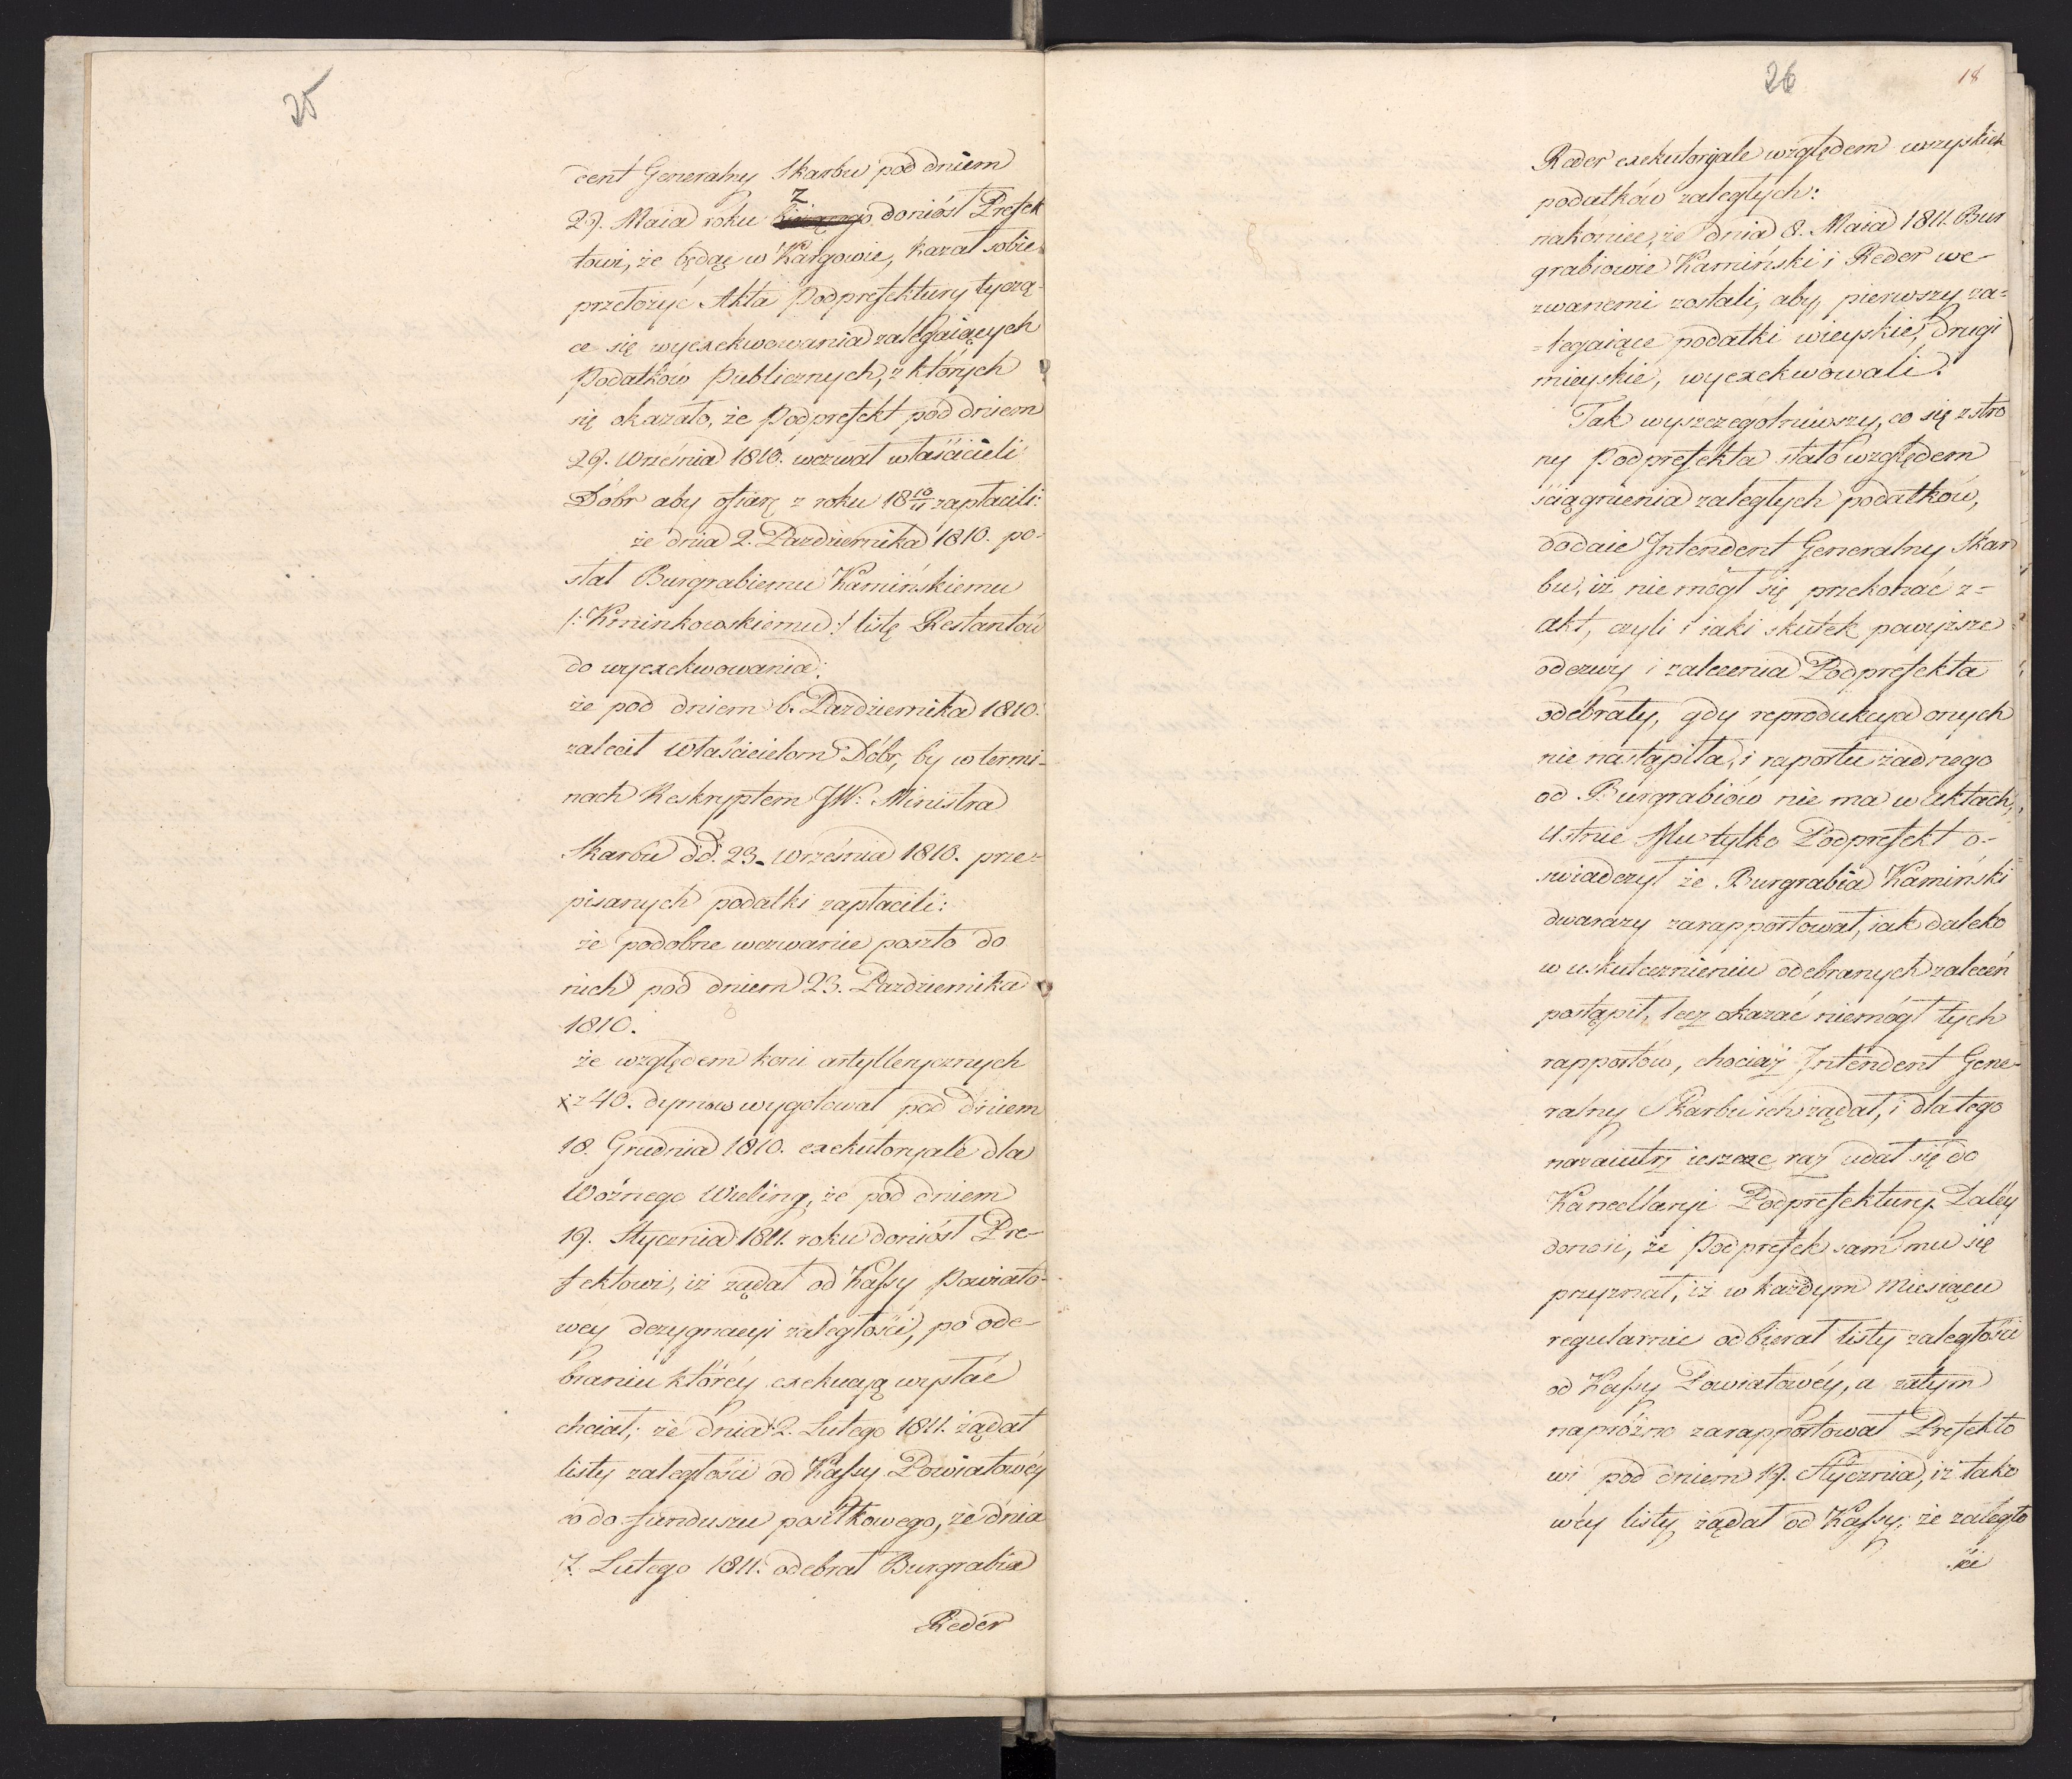 25
dent Generalny Skarbu pod dniem
29. Maia roku z. doniósł Prefek
towi, że będąc w Kargowie, kazał sobie
przełożyć Akta Podprefektury tyczą-
ce się wyexekwowania zalegaiących
Podatków Publicznych, z których
się okazało, że Podprefekt pod dniem
29. Września 1810. wezwał właścicieli
Dóbr aby ofiarę z roku 18 10/11 zapłacili:
że dnia 2. Pazdziernika 1810. po-
słał Burgrabiemu Kamińskiemu
/: Kminkowskiemu :/ listę Restantów
do wyexekwowania:
że pod dniem 6. Pazdziernika 1810.
zalecił Właścicielom Dóbr, by w termi-
nach Reskryptem JW: Ministra
Skarbu dd. 23. Września 1810. prze-
pisanych podatki zapłacili:
że podobne wezwanie poszło do
nich pod dniem 23. Pazdziernika
1810.
że względem koni artyllerycznych
z 40. dymow wygotował pod dniem
18. Grudnia 1810. exekutoryale dla
Woźnego Wieling, że pod dniem
19. Stycznia 1811. roku doniósł Pre-
fektowi, iż żądał od Kassy Powiato-
wéy dezygnacyi zaległości, po ode-
braniu któréy exekucyą wysłać
chciał; że dnia 2. Lutego 1811. żądał
listy zaległości od Kassy Powiatowéy
co do funduszu posiłkowego, że dnia
7. Lutego 1811. odebrał Burgrabia
Reder
26
18
Reder exekutoryale względem wszyskich
podatków zaległych:
nakoniec, że dnia 8. Maia 1811. Bur
grabiowie Kamiński i Reder we-
zwanemi zostali, aby, pierwszy za=
=legaiące podatki wieyskie, drugi
mieyskie, wyexekwowali.
Tak wyszczególniwszy, co się z stro
ny Podprefekta stało względem
ściągnienia zaległych podatków,
dodaie Intendent Generalny Skar
bu, iż niemógł się przekonać z=
akt, czyli i iaki skutek powyższe
odezwy i zalecenia Podprefekta
odebrały, gdy reprodukcya onych
nie nastąpiła, i raportu żadnego
od Burgrabiów nie ma w aktach,
Ustnie Mu tylko Podprefekt o-
swiadczył że Burgrabia Kamiński
dwarazy zarapportował, iak daleko
w uskutecznieniu odebranych zaleceń
postąpił, lecz okazać niemógł tych
rapportów, chociaż Intendent Gene-
ralny Skarbu ich żądał, i dla tego
nazaiutrz ieszcze raz udał się do
Kancellaryi Podprefektury. Daléy
donosi, że Podprefek sam mu się
przyznał, iż w każdym Miesiącu
regularnie odbierał listy zaległości
od Kassy Powiatowéy, a zatym
napróżno zarapportował Prefekto
wi pod dniem 19. Stycznia, iż tako
wéy listy żądał od Kassy; że zaległo
ści